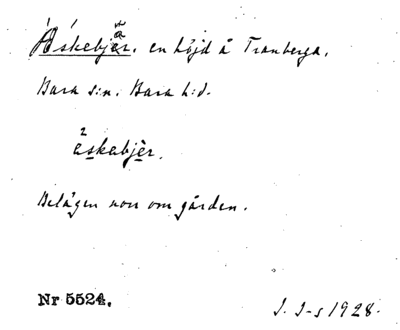 Áskebjär, en höjd å Tranberga,
Bara s:n. Bara h:d.
²åskabjèr.
Belägen norr om gården.
Nr 5524.
J. J-s 1928.